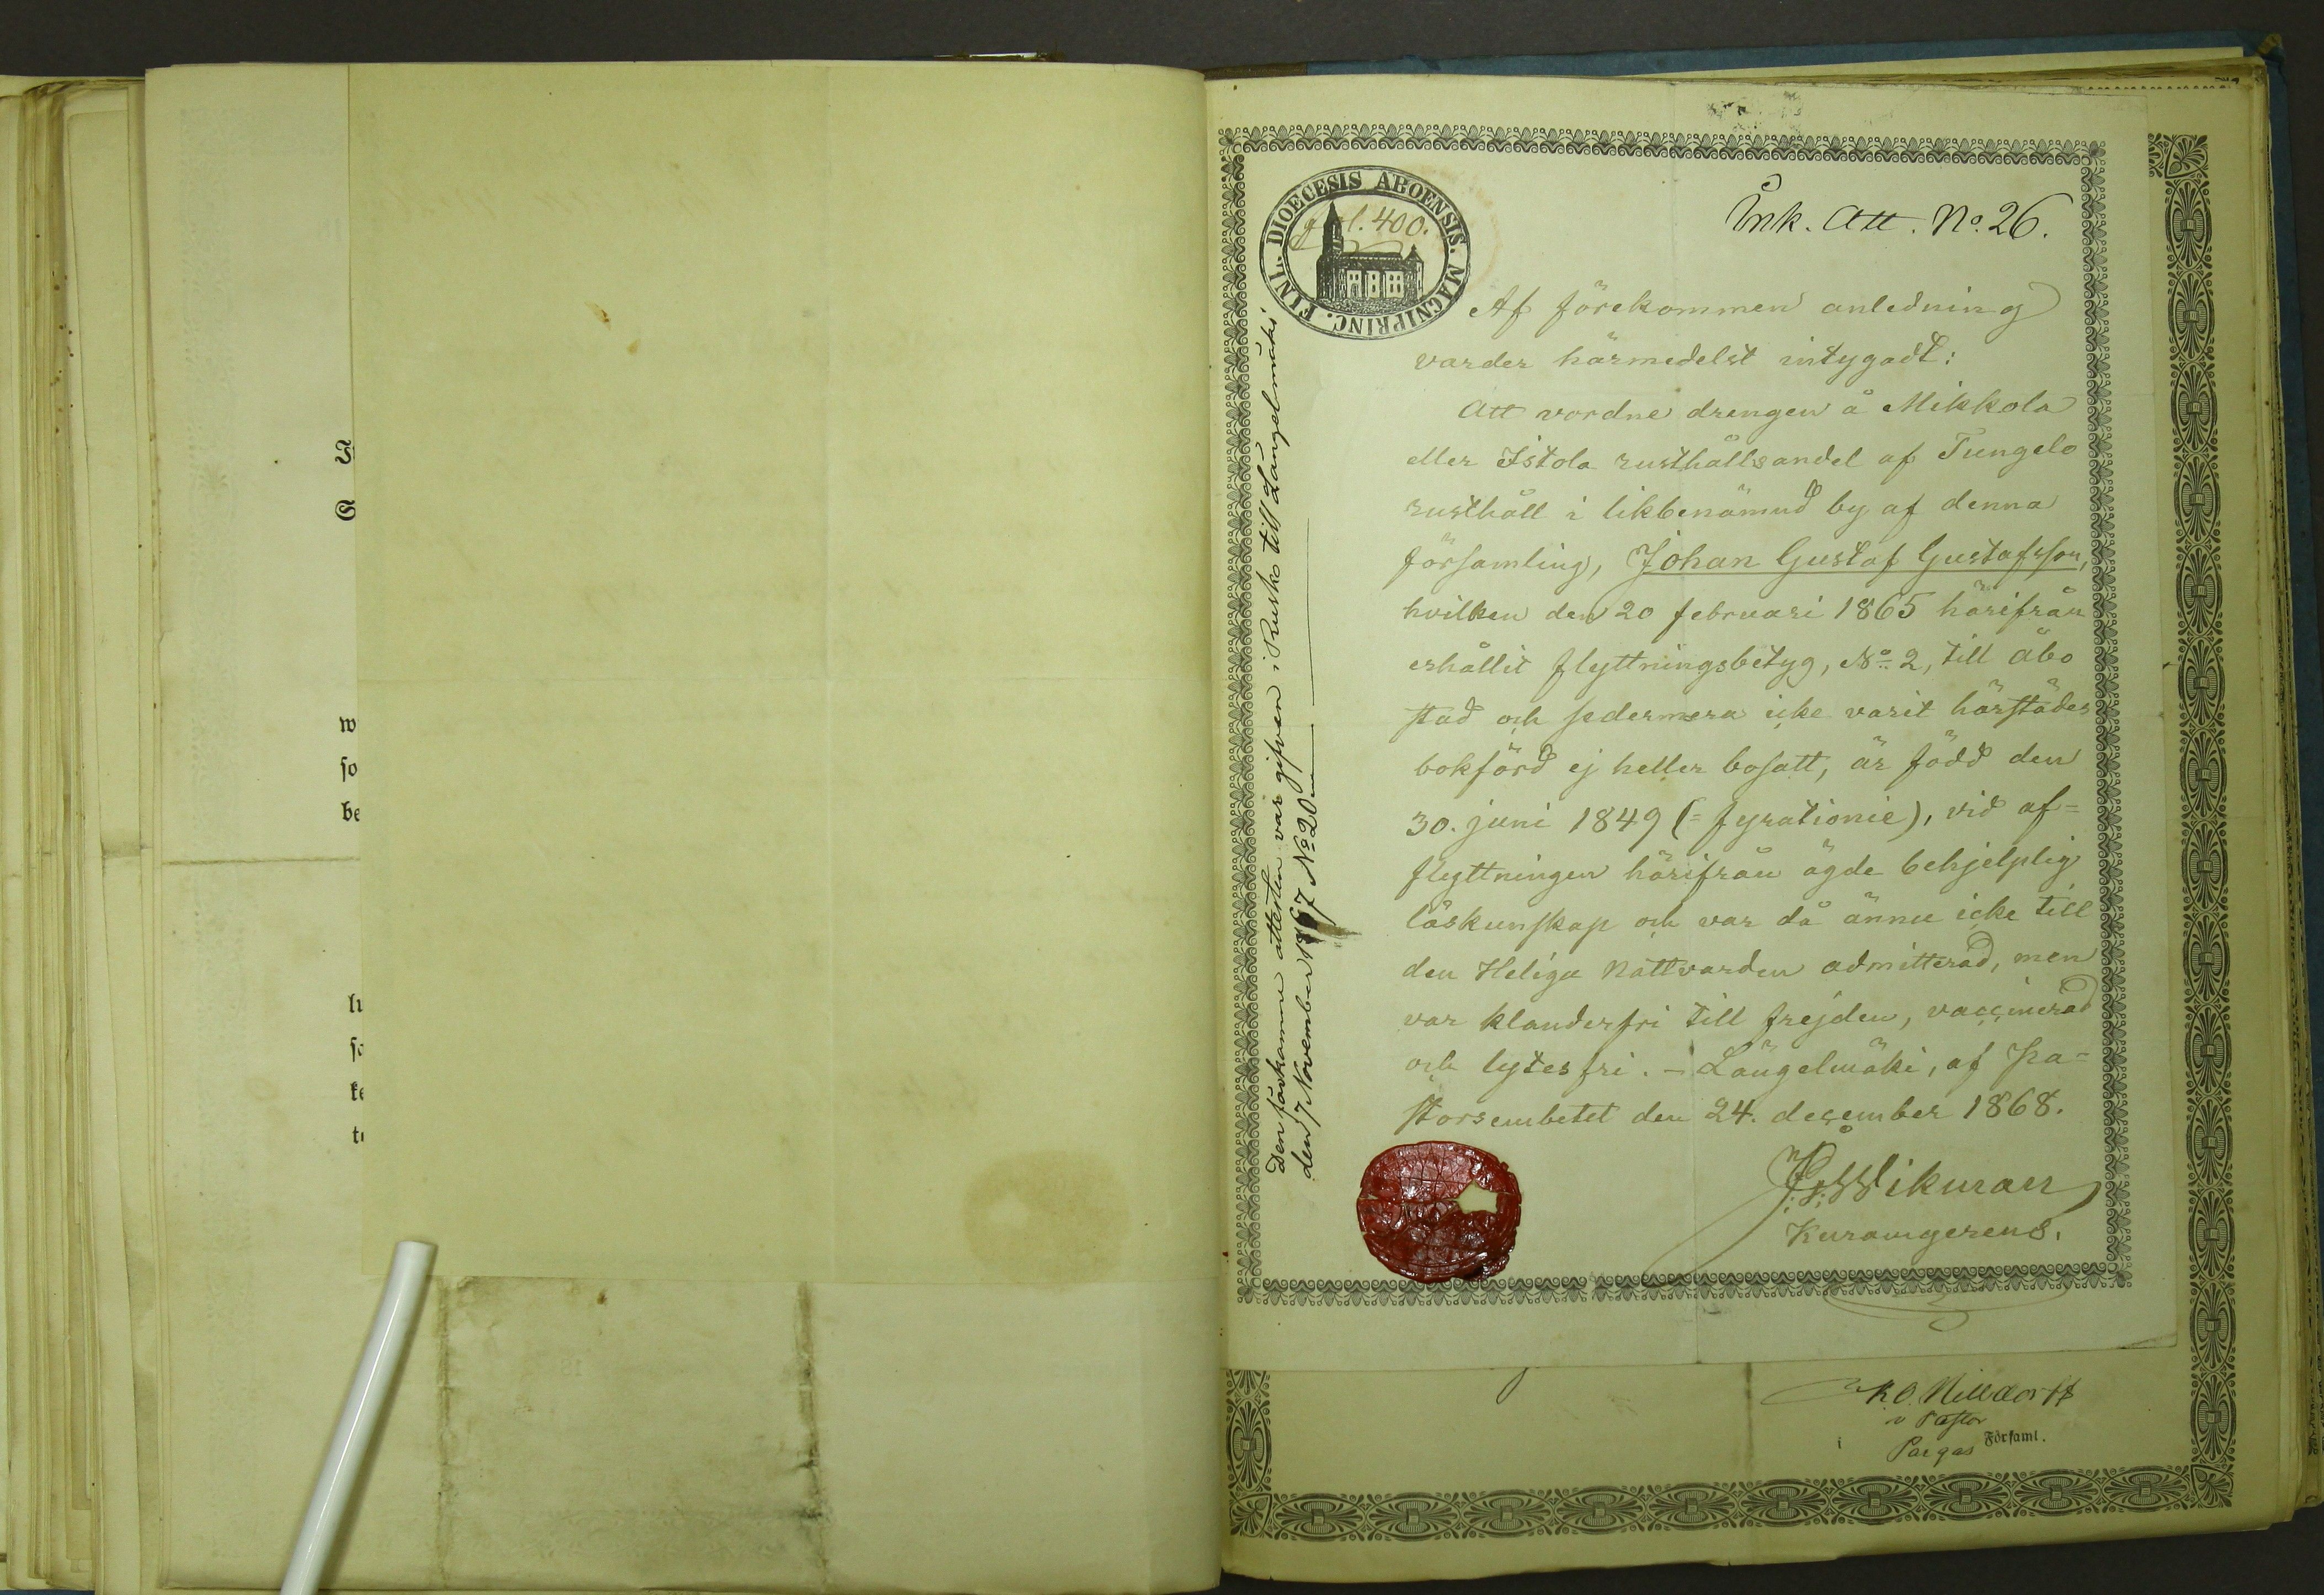 I
S
w
so
be
lu
so
ke
ti
DIOECESIS ABOENSIS. MAGNIPRINC. FINL.
pl. 400.
Ink. Att. No. 26.
Af förekommen anledning
varder härmedelst intygadt:
Att vordne drengen å Mikkola
eller Istola rusthållsandel af Tungelo
rusthåll i likbenämnd by af denna
församling, Johan Gustaf Gustafsson,
hvilken den 20 februari 1865 härifrån
erhållit flyttningsbetyg, No 2, till Åbo
stad och sedermera icke varit härstädes
bokförd ej heller bosatt, är född den
30. juni 1849 (= fyrationie), vid af=
flyttningen härifrån ägde behjelplig
läskunskap och var då ännu icke till
den Heliga Nattvarden admitterad, men
var klanderfri till frejden, vaccinerad
och lytesfri. – Längelmäki, af Pa-
storsembetet den 24. december 1868.
Wikman
Kuramgerens.
Den förkomne attesten var gifven i Rusko till Längelmäki
den 7 November 1867 No 20
K.O. Nilldorff
v Pastor
i Pargas Församl.